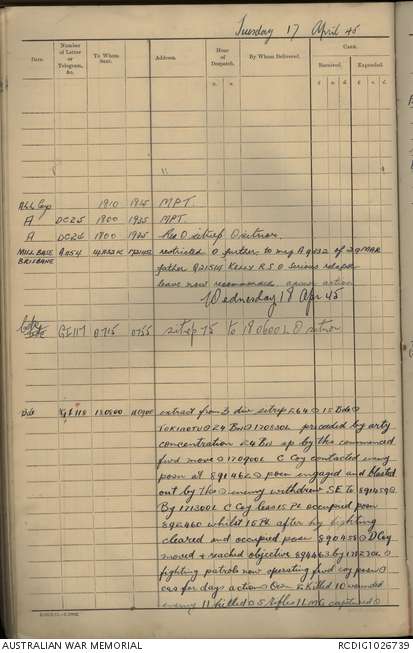 Tuesday 17 April 45
Date.
Number of Letter or Telegram, &c.
To Whom Sent.
Address.
Hour of Despatch.
By Whom Delivered.
Cash.
Received.
Expended.
£ s. d. £ s. d.
All Coys 1910 1925 MPT.
A DC25 1800 1925 MPT.
A DC26 1800 1925 Ren O sitrep O sitnor
MILL BASE BRISBANE A454 restricted O further to msg A 9432 of 29 MAR
father Q21514 KELLY R S O serious relapse
leave now recommended action
Wednesday 18 Apr 45
GE117 0715 0755 sitrep 75 to 180600L O sitnor
Div 180500 extract from 3 div sitrep 564 O 15 Bde O
TOKINOTU O 24 Bn O 170830L preceded by arty
concentration 24 Bn sp by tks commenced
fwd move O 170900L C Coy contacted enemy
posn at 891462 O posn engaged and blasted
out by tks O enemy withdrew SE to 891459 O
By 171300L C Coy less 15 Pl occupied posn
892460 whilst 15 Pl after hy fighting
cleared and occupied posn 890458 O D Coy
moved & reached objective 894463 by 171230L O
fighting patrols now operating fwd coy posn O
cas for days action O Own 2 killed 10 wounded
enemy 11 killed O 5 rifles 1 LMG captured O
AUSTRALIAN WAR MEMORIAL
RCDIG1026739